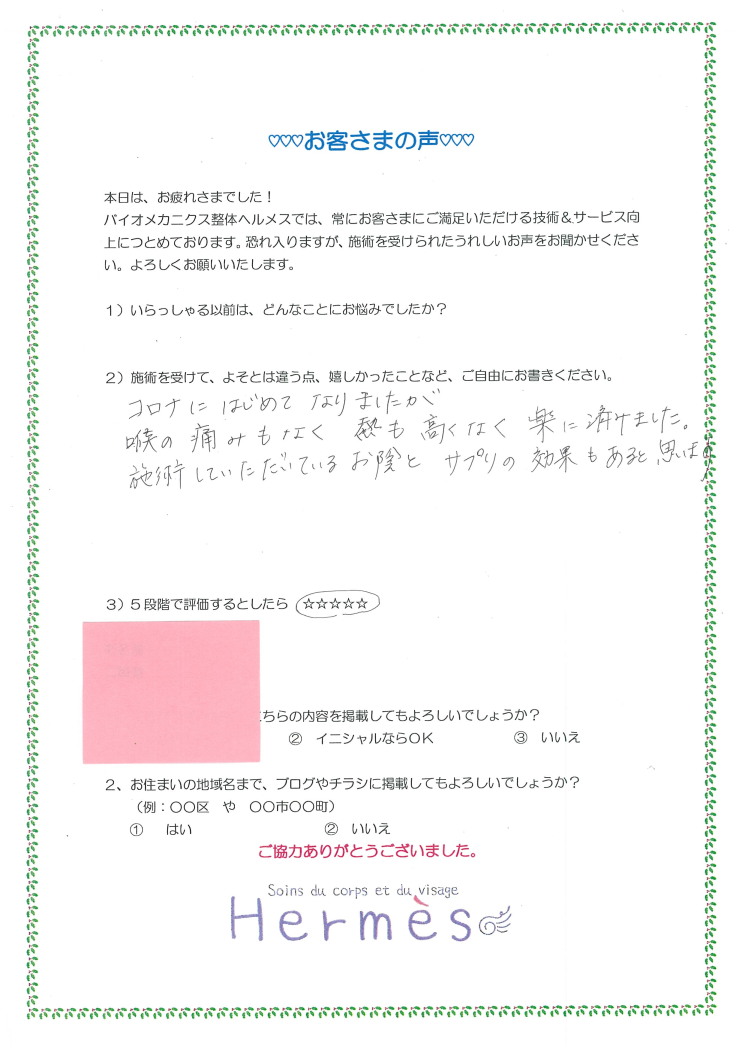 ♡♡♡お客さまの声♡♡♡
本日は、お疲れさまでした！
バイオメカニクス整体ヘルメスでは、常にお客さまにご満足いただける技術＆サービス向
上につとめております。恐れ入りますが、施術を受けられたうれしいお声をお聞かせくださ
い。よろしくお願いいたします。
１）いらっしゃる以前は、どんなことにお悩みでしたか？
２）施術を受けて、よそとは違う点、嬉しかったことなど、ご自由にお書きください。
コロナに はじめて なりましたが
喉の 痛みもなく 熱も 高くなく 楽に 済みました。
施術していただいている お陰と サプリの 効果も あると 思います
３）５段階で評価するとしたら ☆☆☆☆☆
ちらの内容を掲載してもよろしいでしょうか？
② イニシャルならＯＫ ③ いいえ
２、お住まいの地域名まで、ブログやチラシに掲載してもよろしいでしょうか？
（例：〇〇区 や 〇〇市〇〇町）
① はい ② いいえ
ご協力ありがとうございました。
Soins du corps et du visage
Hermès